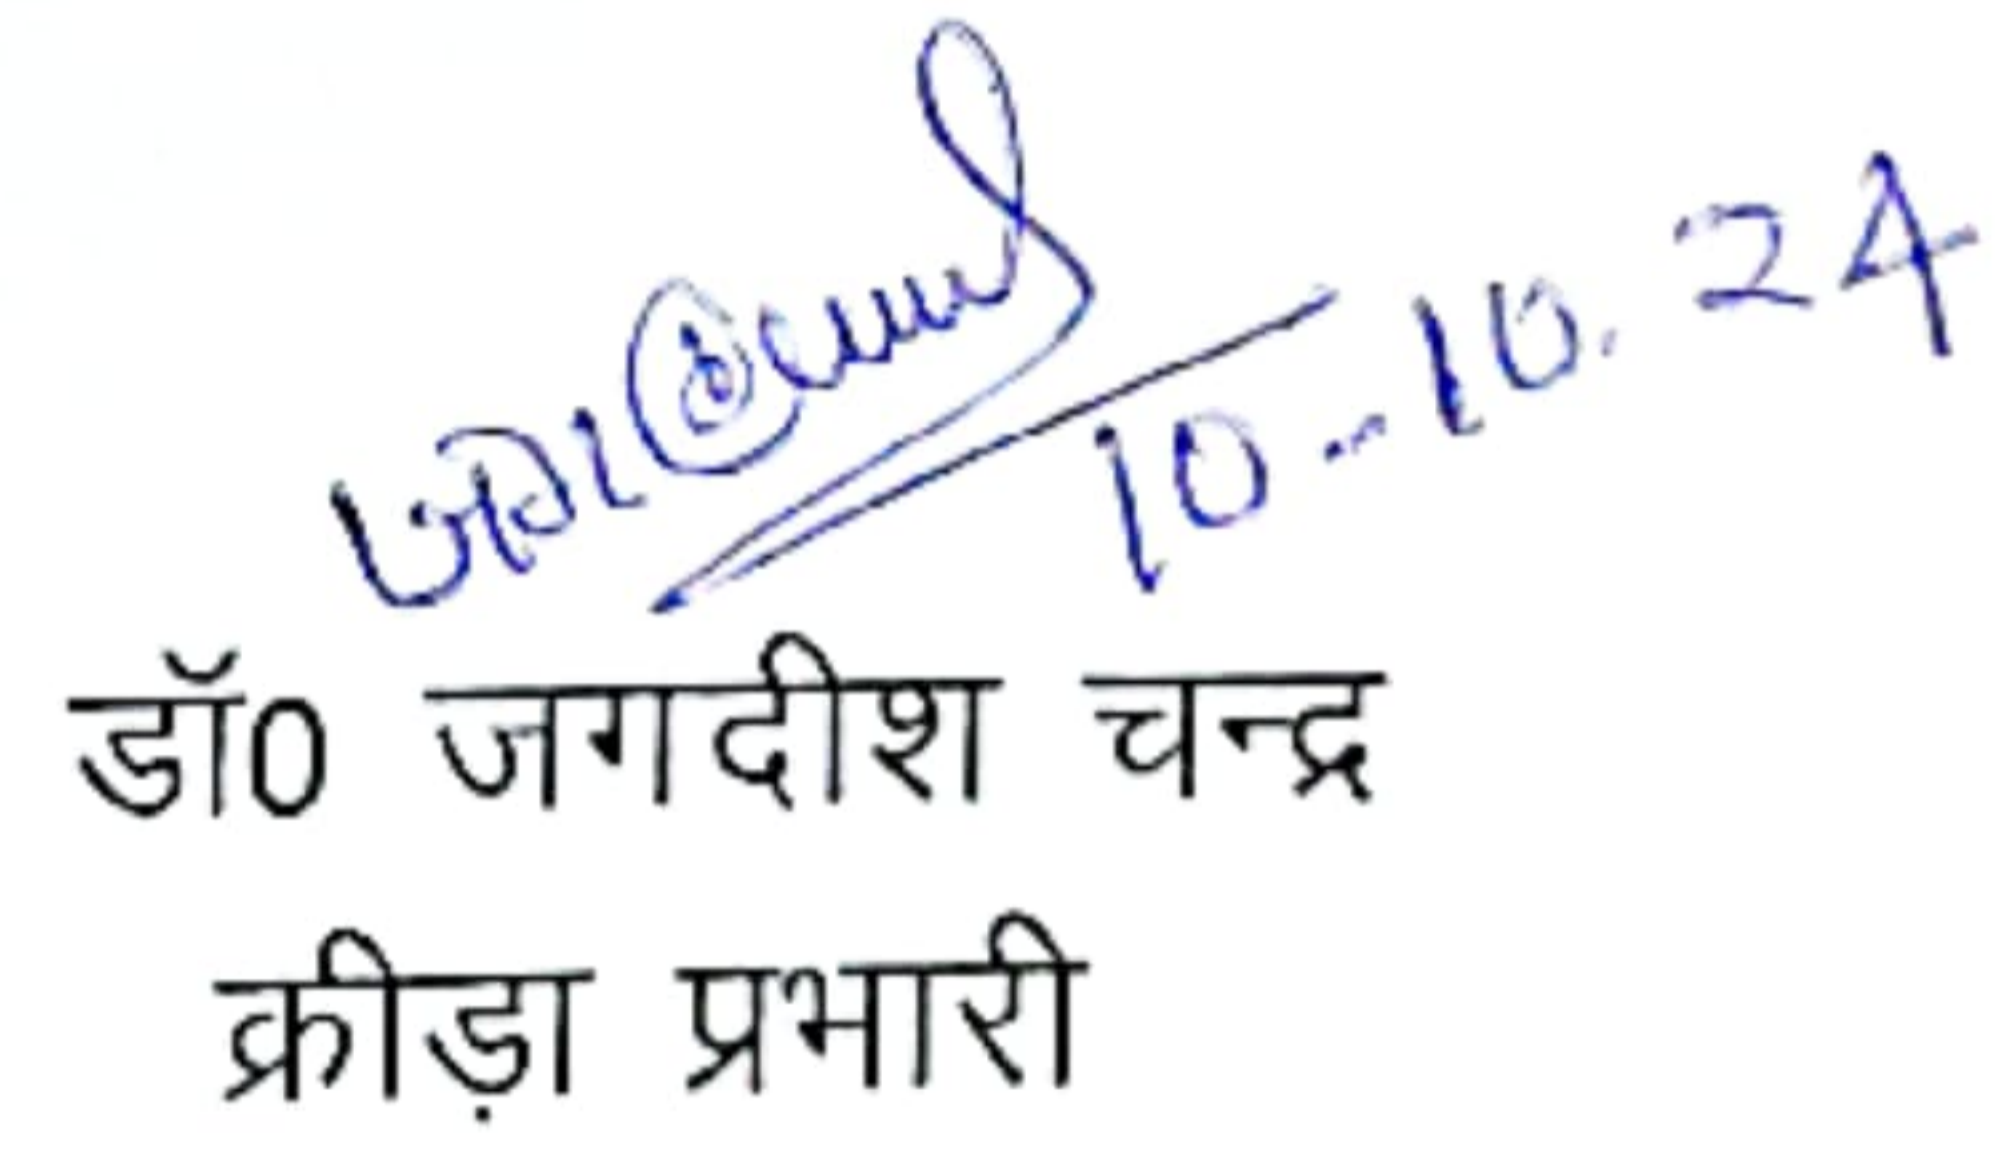 10-10.24
डॉ0 जगदीश चन्द्र
क्रीड़ा प्रभारी